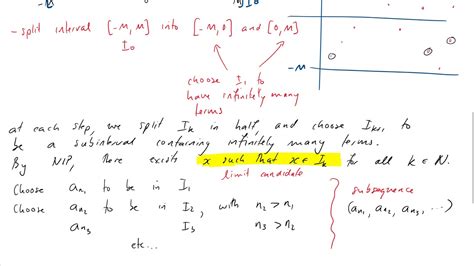 - split interval [-M, M] into [-M, 0] and [0, M]
I₀
-M
choose I₁ to
have infinitely many
terms
at each step, we split Iₖ in half, and choose Iₖ₊₁ to
be a subinterval containing infinitely many terms.
By NIP, there exists x such that x ∈ Iₖ for all k ∈ ℕ.
limit candidate
Choose aₙ₁ to be in I₁
Choose aₙ₂ to be in I₂, with n₂ > n₁
aₙ₃ I₃ n₃ > n₂
etc...
subsequence
(aₙ₁, aₙ₂, aₙ₃, ...)